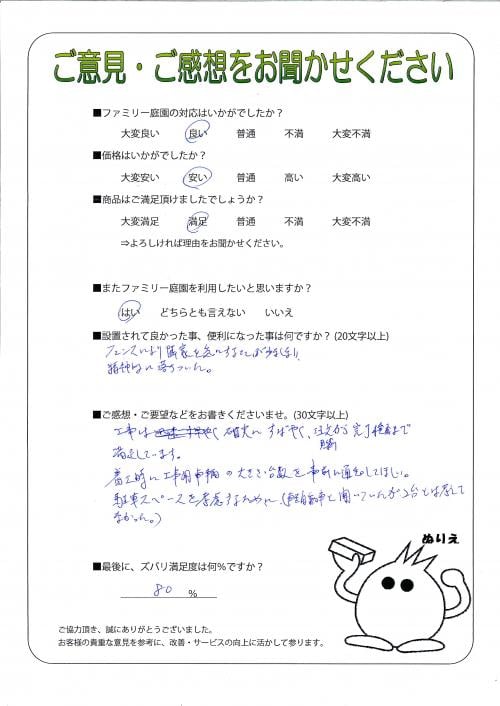 ご意見・ご感想をお聞かせください
■ファミリー庭園の対応はいかがでしたか？
大変良い 良い 普通 不満 大変不満
■価格はいかがでしたか？
大変安い 安い 普通 高い 大変高い
■商品はご満足頂けましたでしょうか？
大変満足 満足 普通 不満 大変不満
⇒よろしければ理由をお聞かせください。
■またファミリー庭園を利用したいと思いますか？
はい どちらとも言えない いいえ
■設置されて良かった事、便利になった事は何ですか？ (20文字以上)
フェンスにより隣家を気にすることが少なくなり
精神的に落ちついた。
■ご感想・ご要望などをお書きくださいませ。(30文字以上)
工事は 確実にすばやく、注文から完了まで
満足しています。
着工時に工事用車輌の大きさ、台数を事前に通知してほしい。
駐車スペースを考慮するために（軽自動車と聞いていたが2台とは思して
なかった。）
■最後に、ズバリ満足度は何％ですか？
80 ％
ぬりえ
ご協力頂き、誠にありがとうございました。
お客様の貴重な意見を参考に、改善・サービスの向上に活かして参ります。